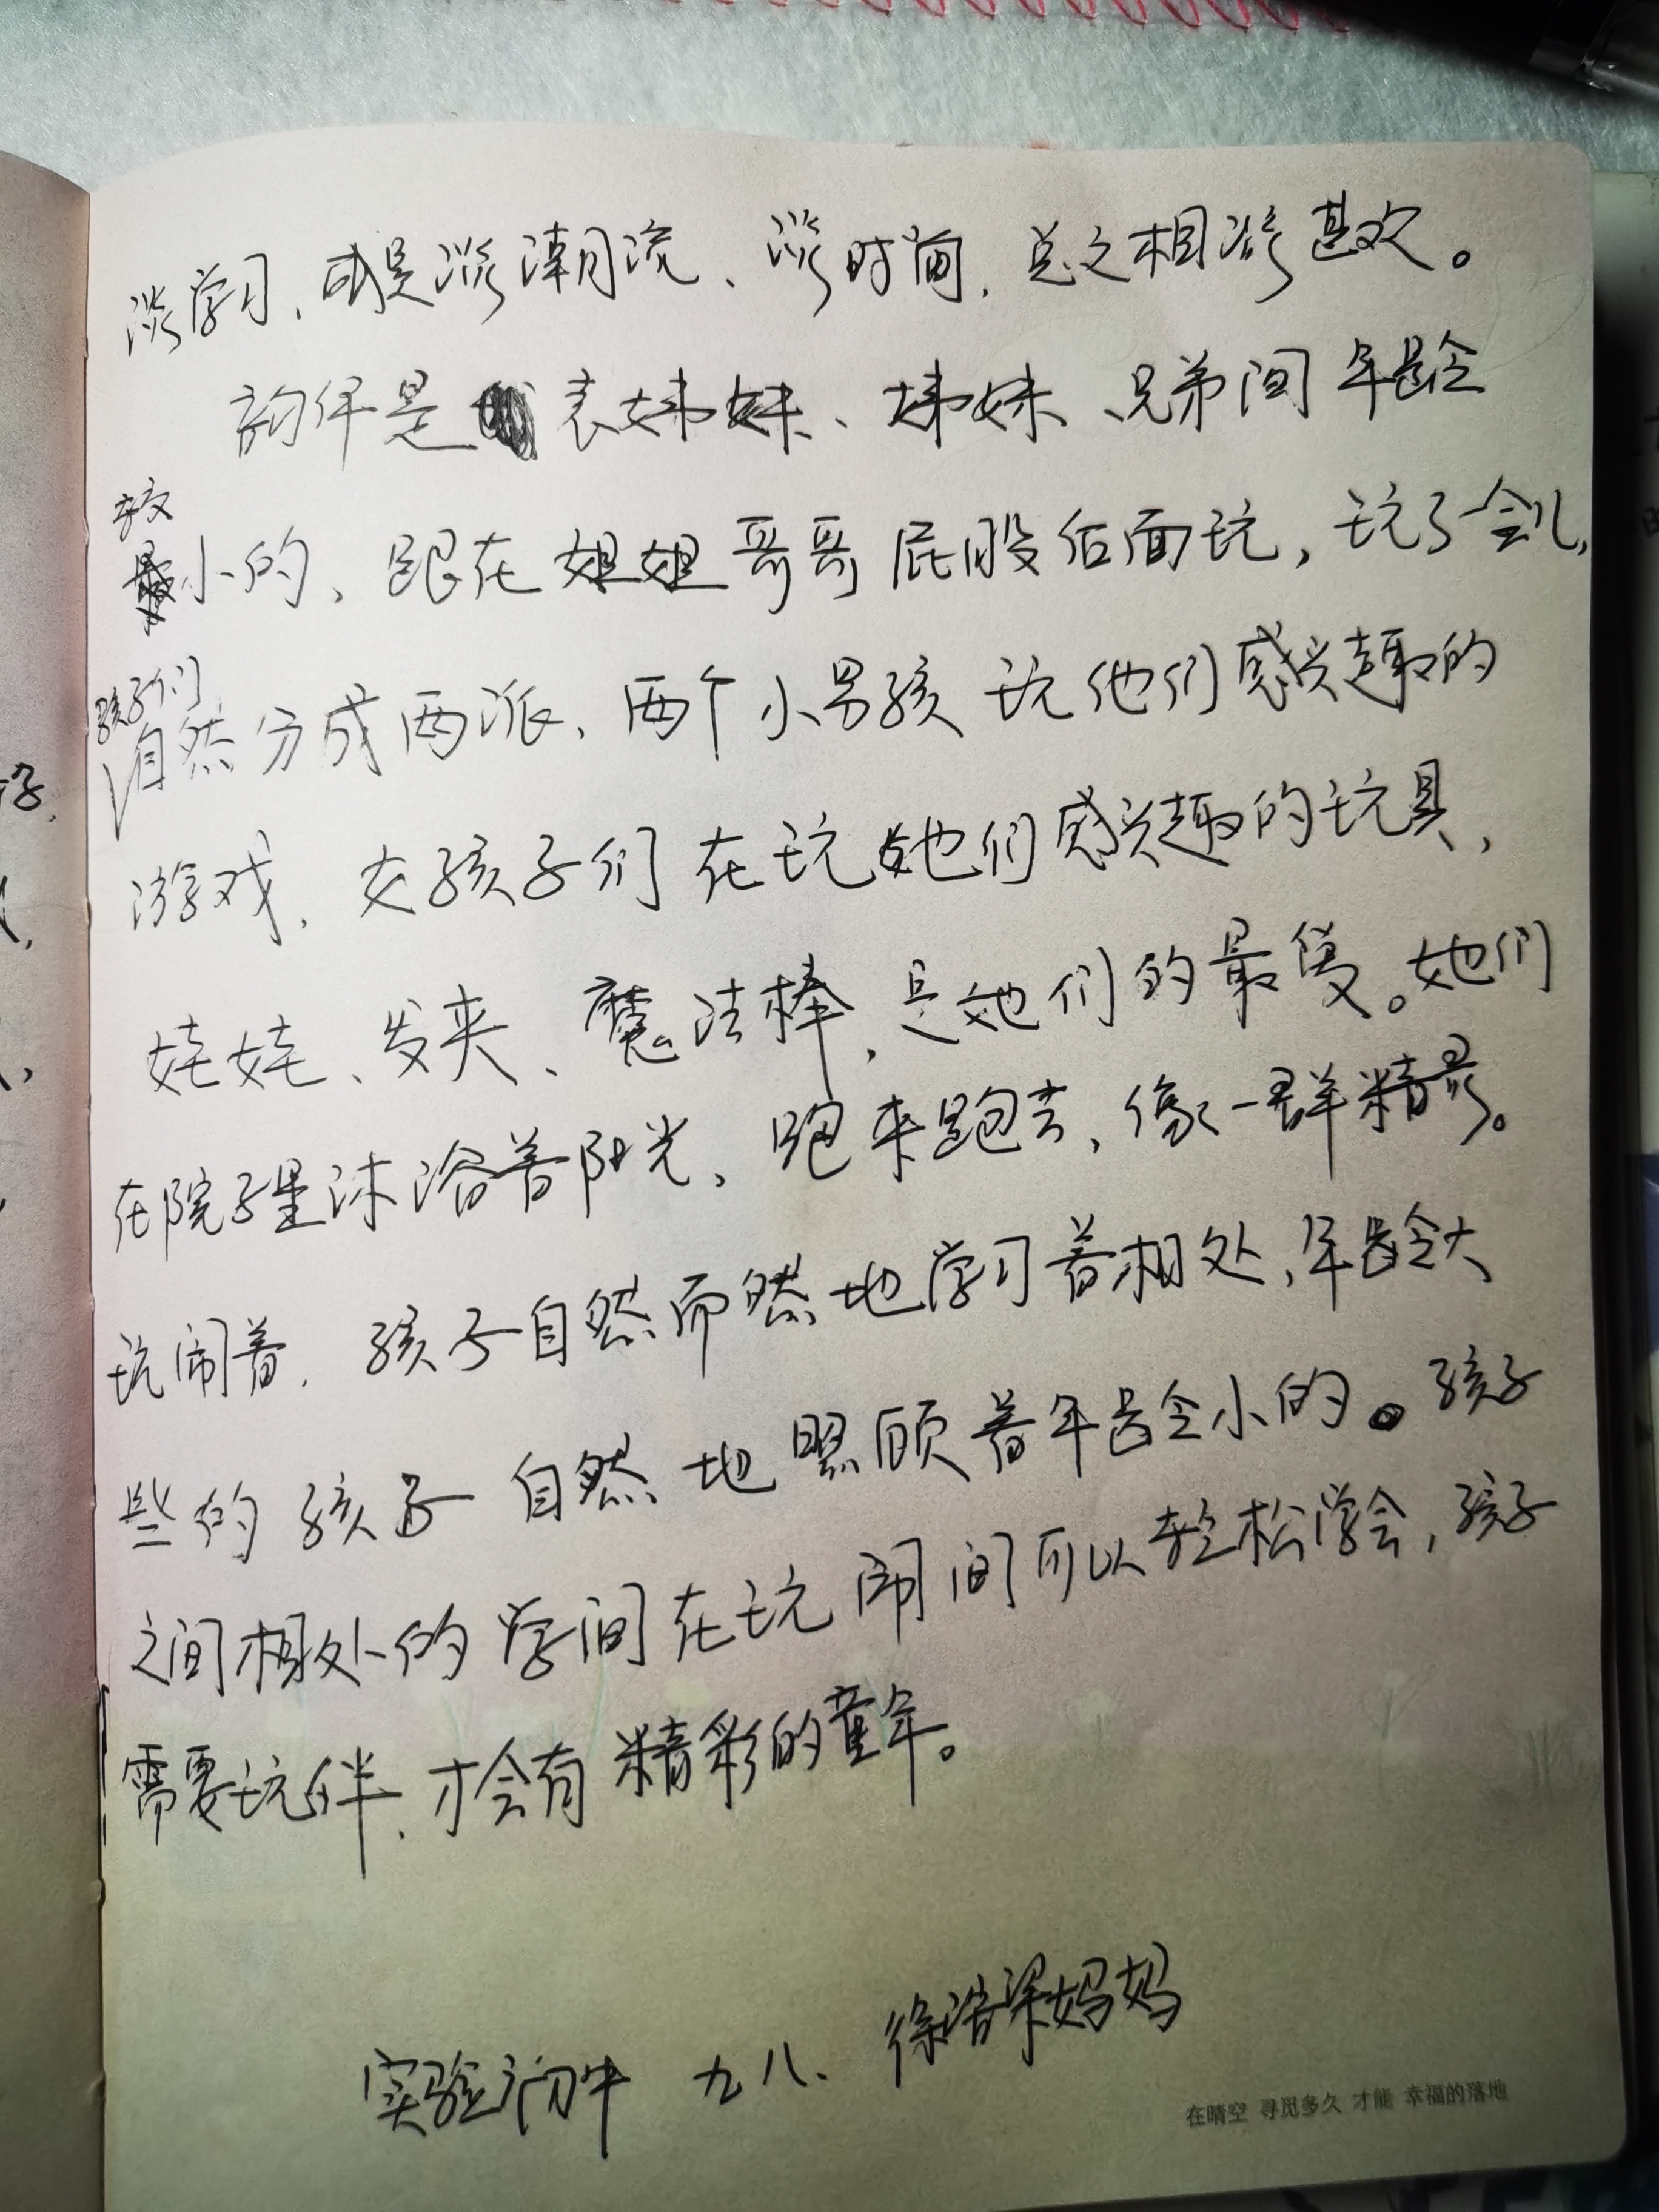 谈学习，或是谈潮流、谈时间，总之相谈甚欢。
韵伊是表姊妹、姊妹、兄弟间年龄
较
小的，跟在姐姐哥哥屁股后面玩，玩了会儿，
孩子们
自然分成两派，两个小男孩玩他们感兴趣的
游戏，女孩子们在玩她们感兴趣的玩具，
娃娃、发夹、魔法棒，是她们的最爱。她们
在院子里沐浴着阳光，跑来跑去，像一群精灵。
玩闹着，孩子自然而然地学习着相处，年龄大
些的孩子自然地照顾着年龄小的。孩子
之间相处的学问在玩闹间可以轻松学会，孩子
需要玩伴，才会有精彩的童年。
实验初中 九八、徐浩 妈妈
在晴空 寻觅多久 才能 幸福的落地